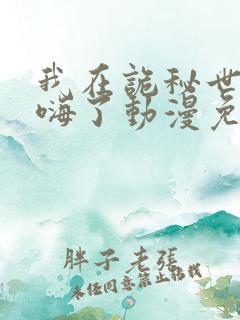 我在詭秘世
嗨了動漫免
胖子老張
未經同意禁止轉載